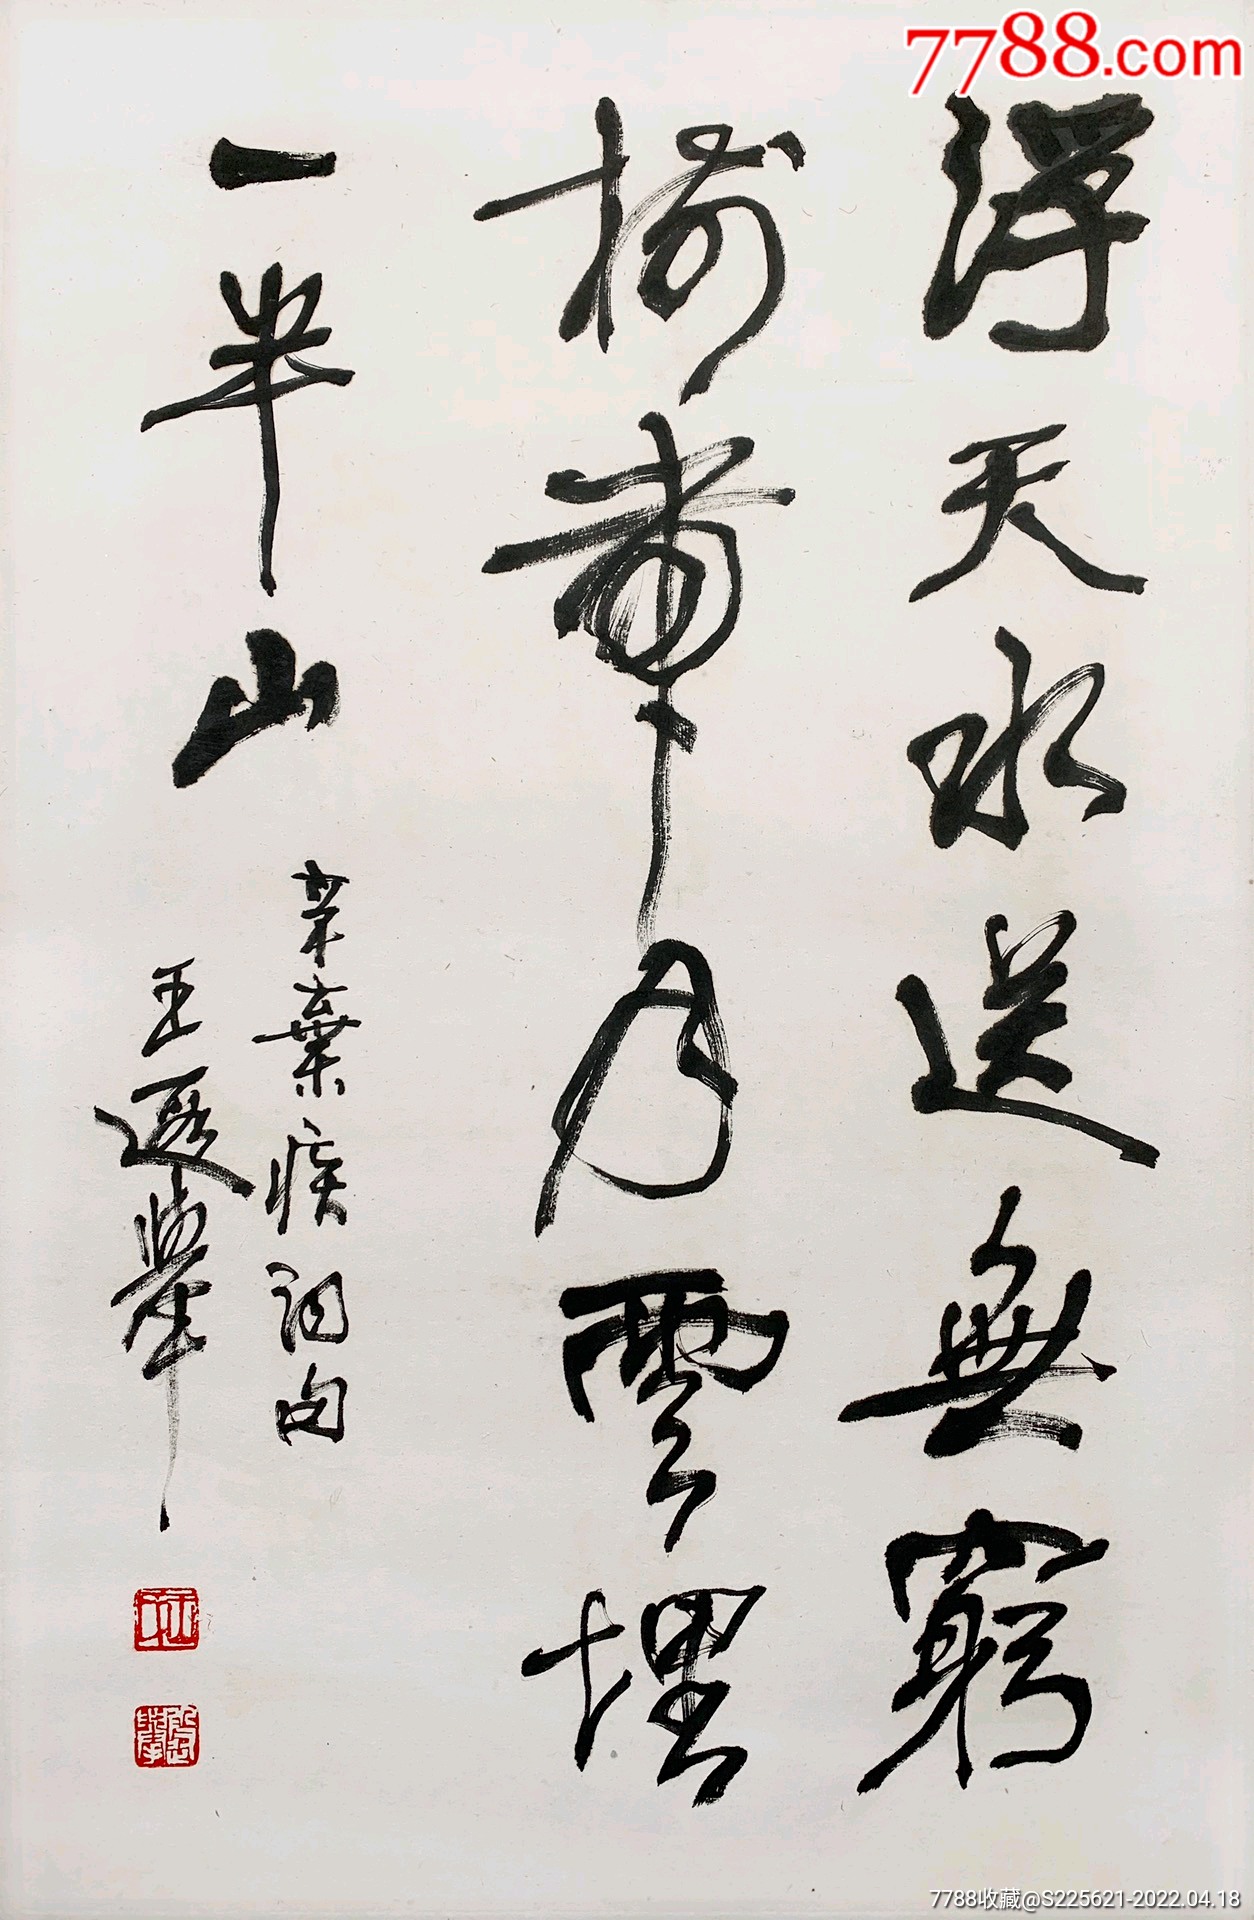 7788.com
浮天水送無窮
樹帶雨雲埋
一半山
辛棄疾詞句
王遐舉
7788收藏@S225621-2022.04.18